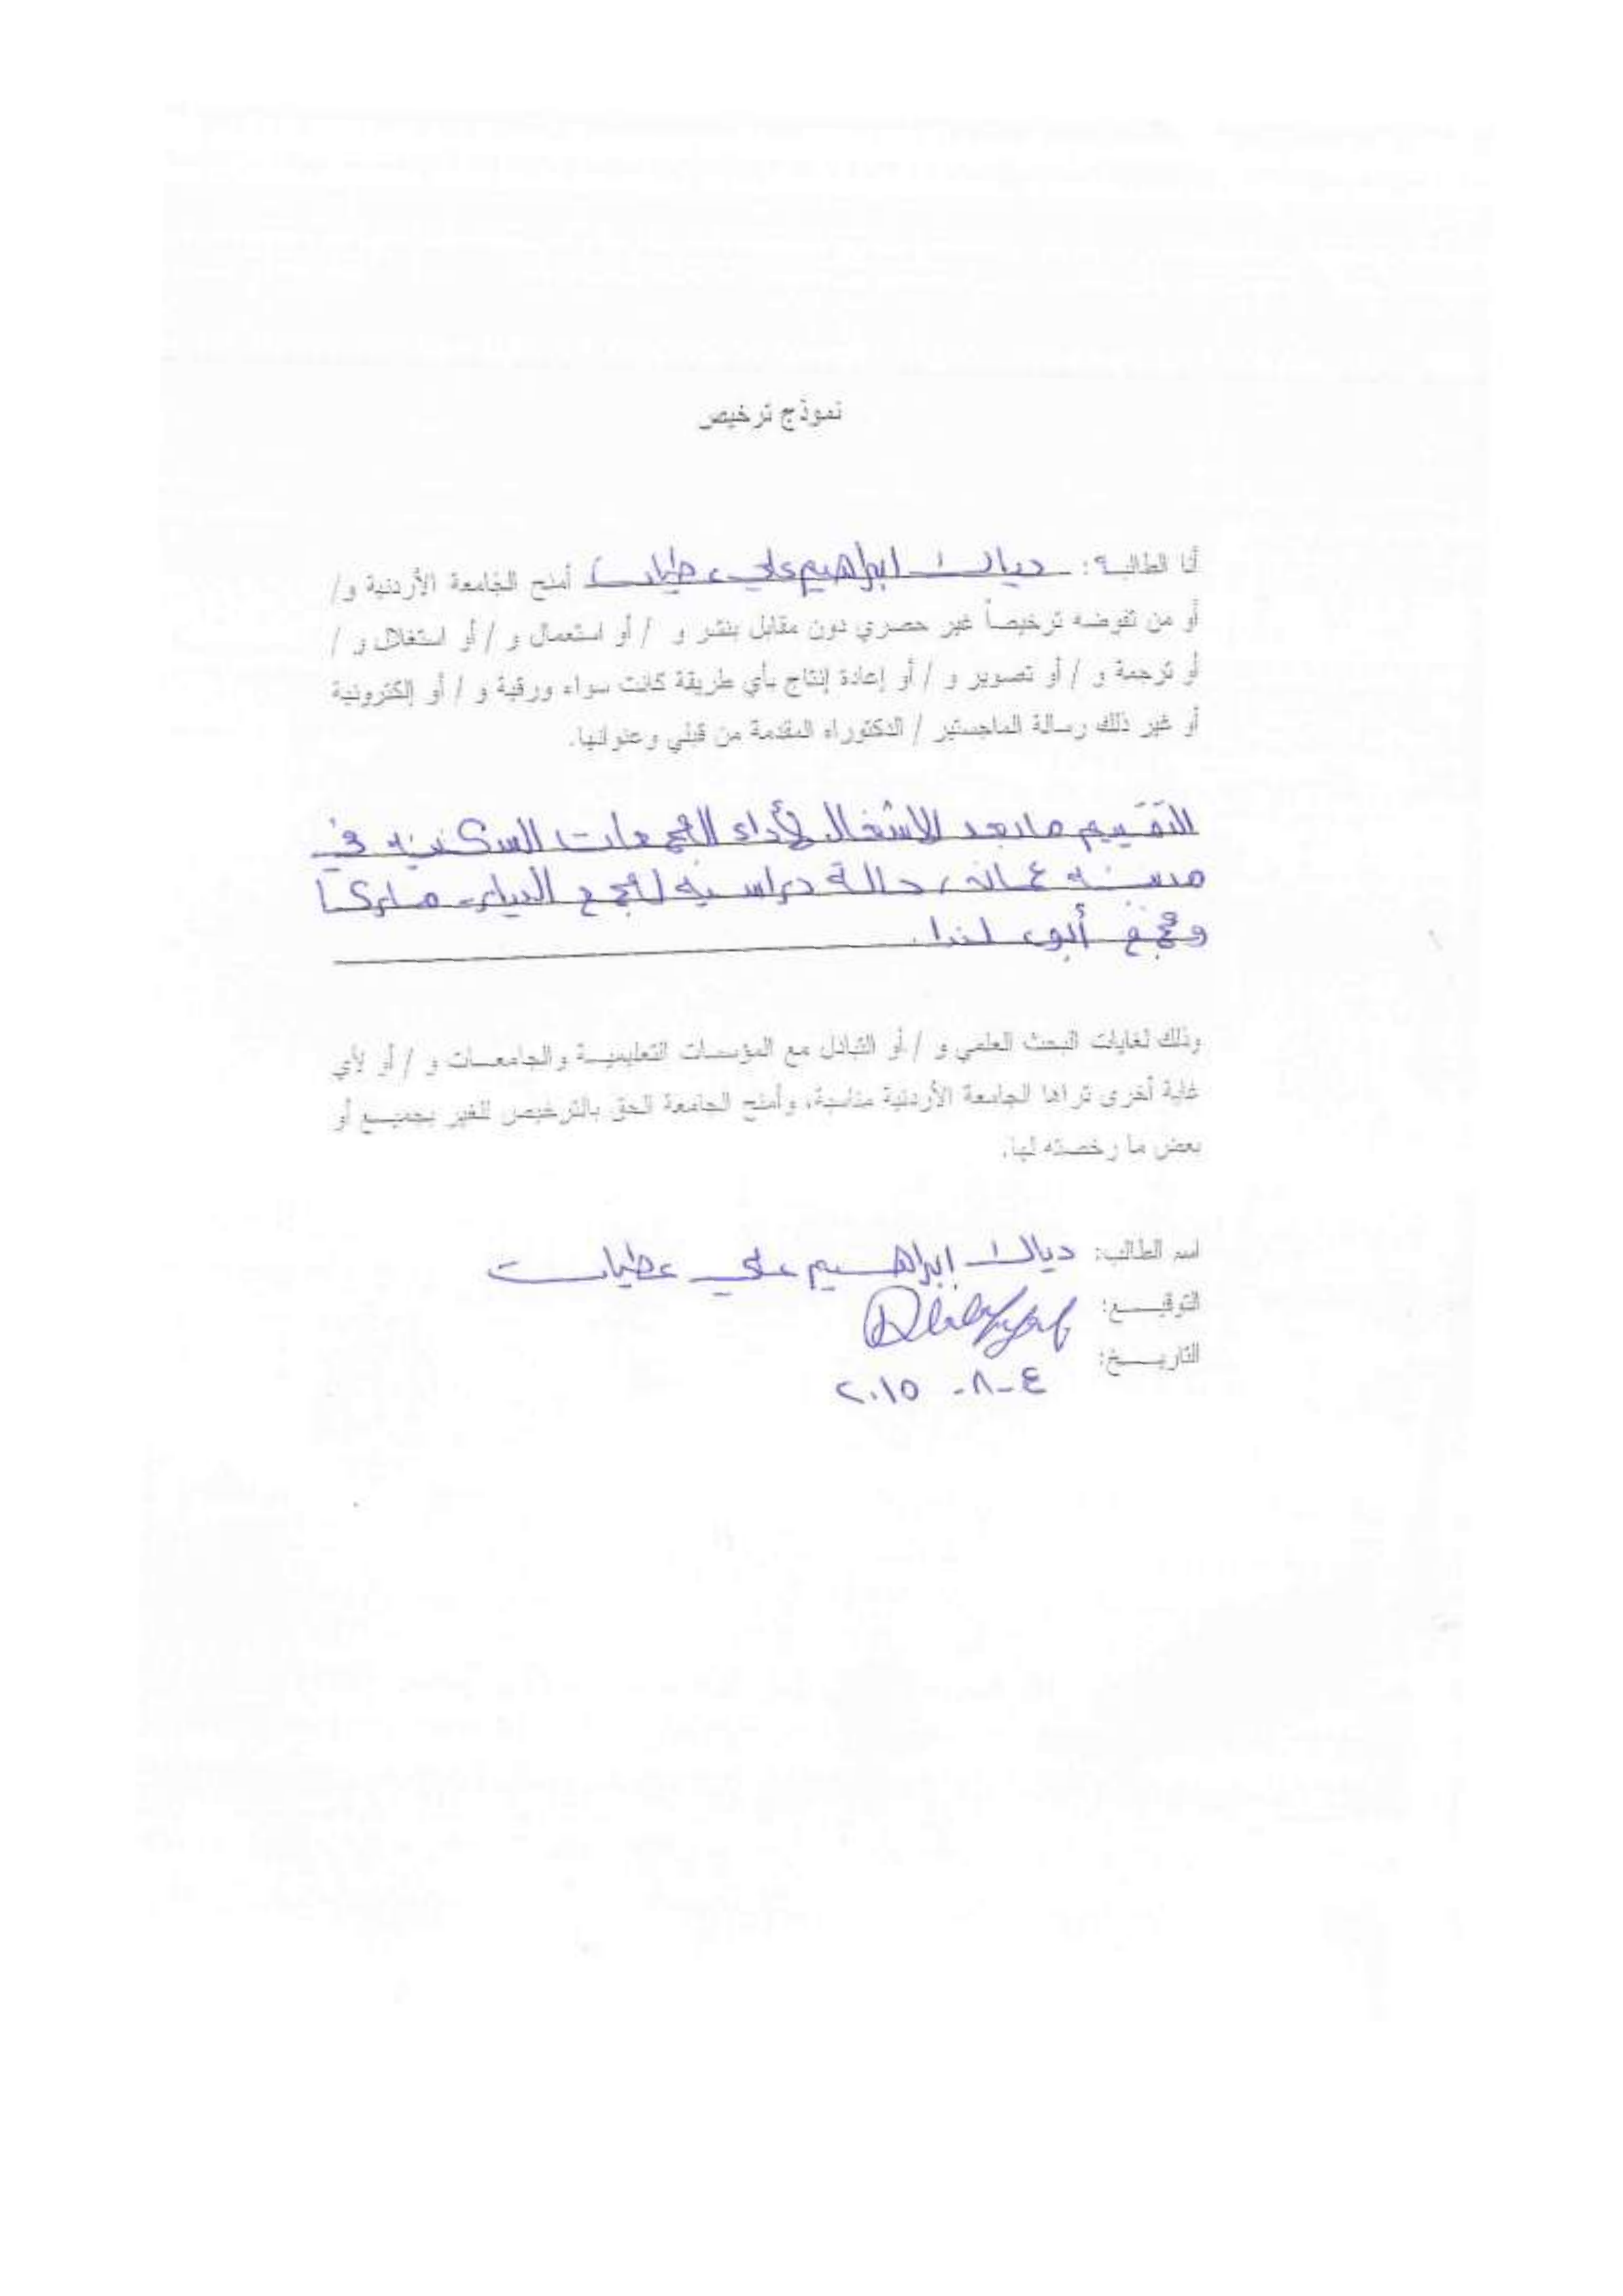 نموذج ترخيص
أنا الطالبة: ديالا ابراهيم علي عطيات أمنح الجامعة الأردنية و/
أو من تفوضه ترخيصاً غير حصري دون مقابل بنشر و / أو استعمال و / أو استغلال و /
أو ترجمة و / أو تصوير و / أو إعادة إنتاج بأي طريقة كانت سواء ورقية و / أو إلكترونية
أو غير ذلك رسالة الماجستير / الدكتوراه المقدمة من قبلي وعنوانها.
التقييم ما بعد الاشغال لأداء المجمعات السكنية في
مدينة عمان، حالة دراسية لمجمع البيادر ماركا
ومجمع أبو لندا.
وذلك لغايات البحث العلمي و / أو التبادل مع المؤسسات التعليمية والجامعات و / أو لأي
غاية أخرى تراها الجامعة الأردنية مناسبة، وأمنح الجامعة الحق بالترخيص للغير بجميع أو
بعض ما رخصته لها.
اسم الطالب: ديالا إبراهيم علي عطيات
التوقيع:
التاريخ:
٤-٨- ٢٠١٥